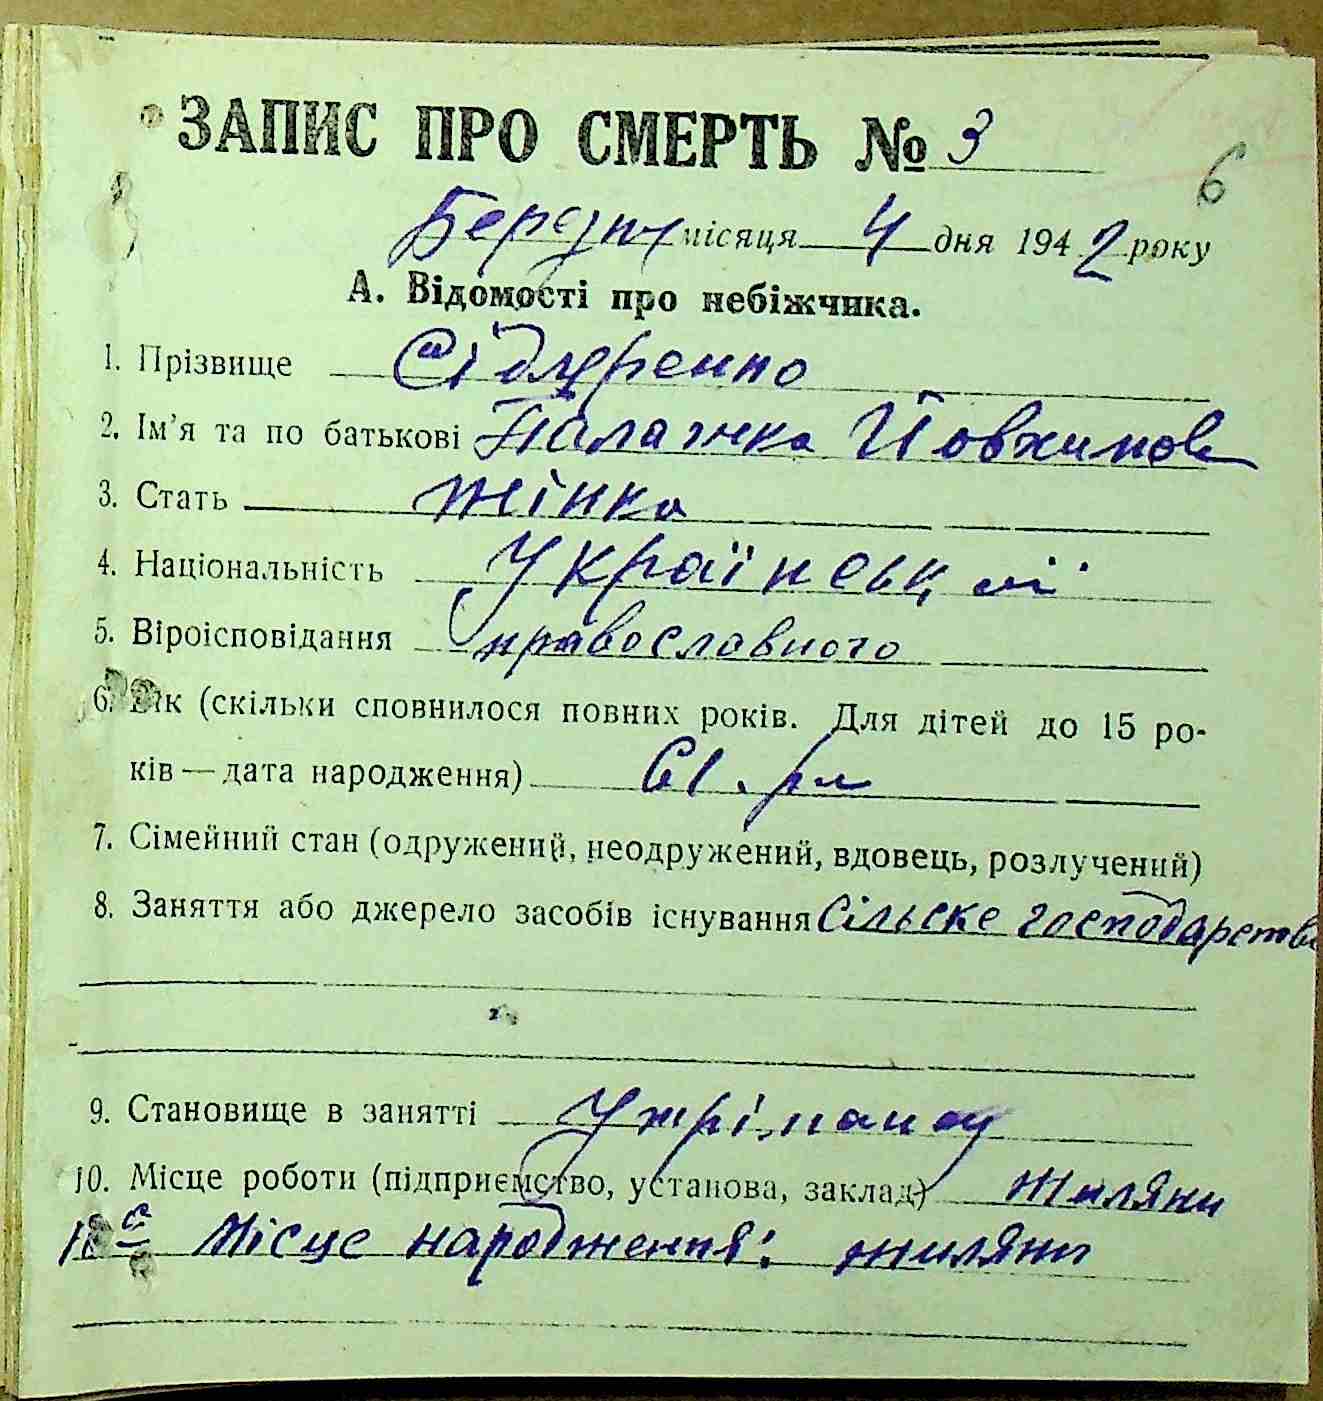 ЗАПИС ПРО СМЕРТЬ № 3
6
місяця 4 дня 1942 року
А. Відомості про небіжчика.
1. Прізвище
2. Ім'я та по батькові Палажка Йовхимов
3. Стать жінка
4. Національність
5. Віроісповідання православного
6. Вік (скільки сповнилося повних років. Для дітей до 15 ро-
ків — дата народження) 61
7. Сімейний стан (одружений, неодружений, вдовець, розлучений)
8. Заняття або джерело засобів існування Сільске господарство
9. Становище в занятті
10. Місце роботи (підприємство, установа, заклад) Жиляни
Місце народження: Жиляни